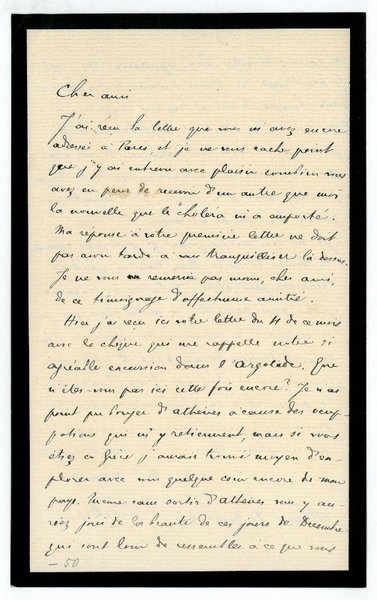 Cher ami
J'ai reçu la lettre que vous m'avez encore
adressée à Paris et je ne vous cache point
que j'y ai entrevu avec plaisir combien vous
avez eu peur de recevoir d'un autre que moi
la nouvelle que le choléra m'a emporté.
Ma réponse à votre première lettre ne doit
pas avoir tardé à vous tranquilliser là dessus.
Je ne vous remercie pas moins, cher ami,
de ce témoignage d'affectueuse amitié.
Hier j'ai reçu ici votre lettre du 11 de ce mois
avec le chèque qui me rappelle notre si
agréable excursion dans l'Argolide. Que
n'êtes-vous pas ici cette fois encore? Je n'ai
point pu bouger d'Athènes à cause des occup-
pations qui m'y retiennent, mais si vous
étiez en Grèce j'aurais trouvé moyen d'ex-
plorer avec vous quelque coin encore de mon
pays. Même sans sortir d'Athènes vous y au-
riez joui de la beauté de ces jours de Décembre
qui sont loin de ressembler à ce que vous
— 50